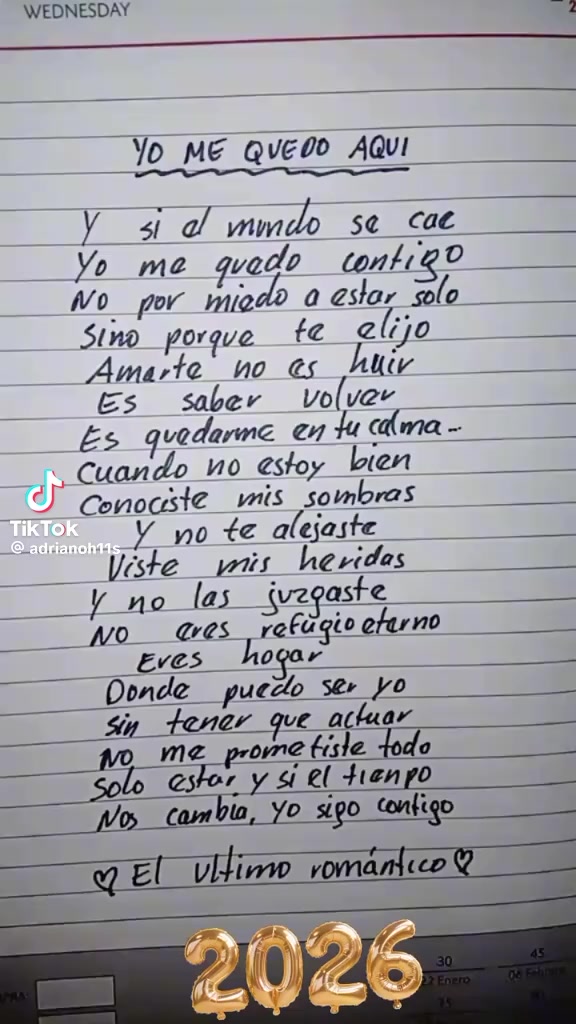 WEDNESDAY
YO ME QUEDO AQUI
Y si el mundo se cae
Yo me quedo contigo
No por miedo a estar solo
Sino porque te elijo
Amarte no es huir
Es saber volver
Es quedarme en tu calma...
Cuando no estoy bien
Conociste mis sombras
Y no te alejaste
Viste mis heridas
Y no las juzgaste
No eres refugio eterno
Eres hogar
Donde puedo ser yo
sin tener que actuar
No me prometiste todo
Solo estar y si el tienpo
Nos cambia, yo sigo contigo
♡ El ultimo romántico ♡
TikTok
@adrianoh11s
2026
30
45
22 Enero
75